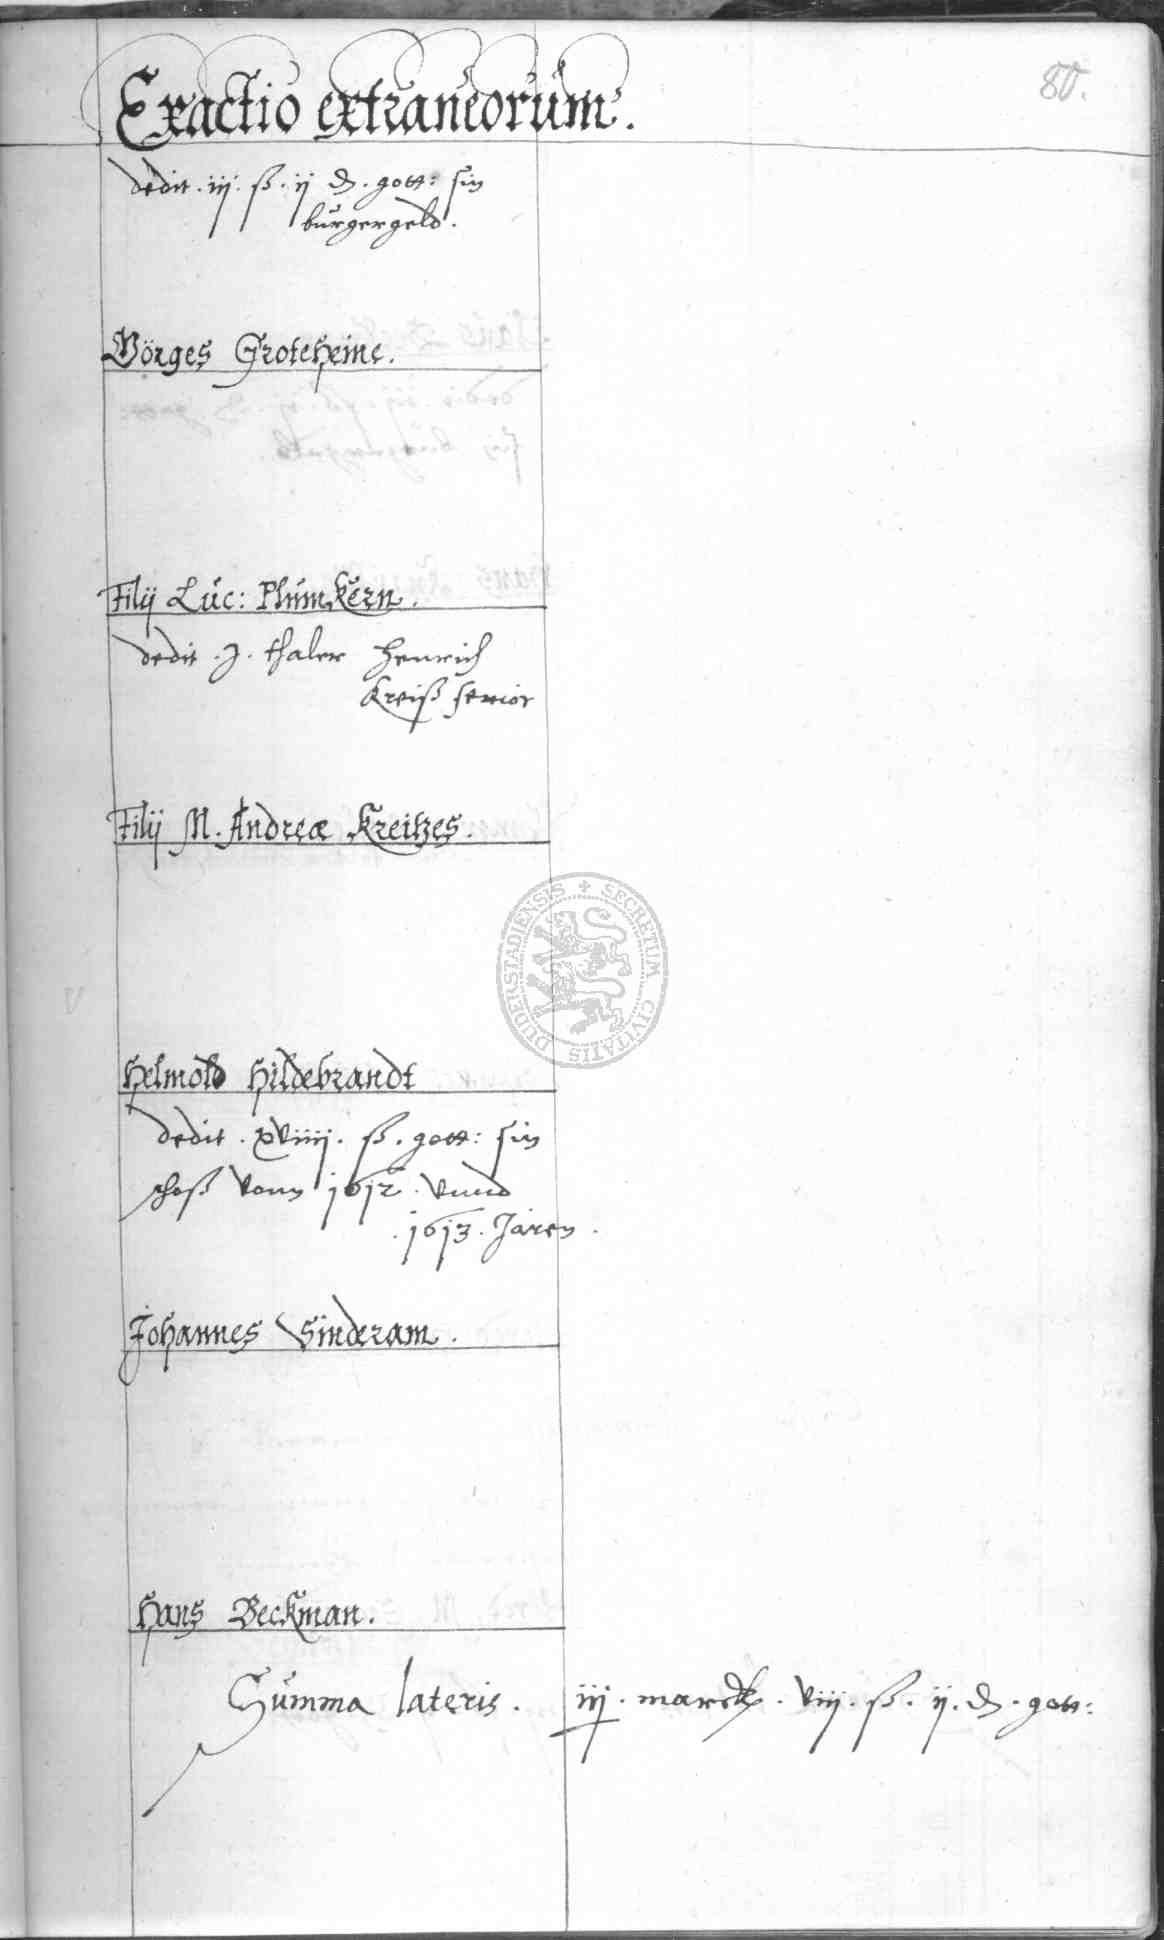 80.
Exactio extraneorum.
dedit . iij . ß . ij ₰ . gott: sin
burgergeld .
Börges Groteheine .
Filij Luc: Plumkern .
dedit . j . thaler Henrich
Kreiß senior
Filij M. Andreæ Kreitzes .
DUDERSTADIENSIS ✢ SECRETUM CIVITATIS
Helmold Hildebrandt
dedit . xviiij . ß . gott: sin
schoß vonn 1612 . vnnd
. 1613 . Jaren .
Johannes Sinderam .
Hans Beckman .
Summa lateris . iij . marck . viij . ß . ij . ₰ . gott: